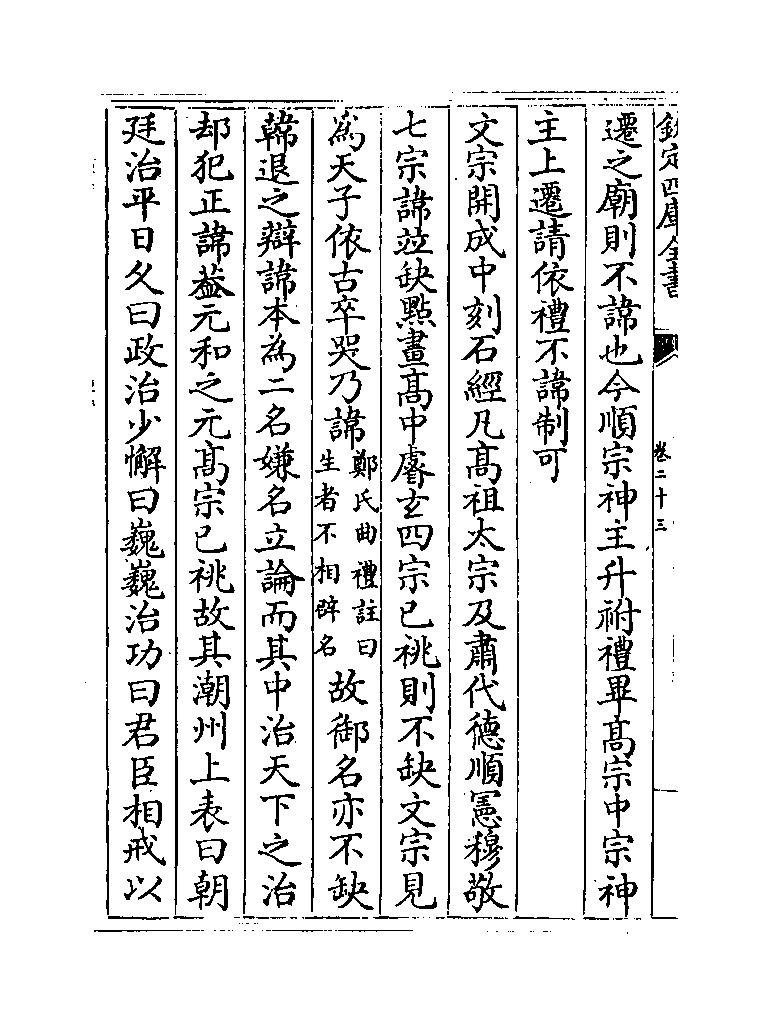 欽定四庫全書
卷二十三
遷之廟則不諱也今順宗神主升祔禮畢髙宗中宗神
主上遷請依禮不諱制可
文宗開成中刻石經凡髙祖太宗及肅代德順憲穆敬
七宗諱並缺點畫髙中睿玄四宗已祧則不缺文宗見
爲天子依古卒哭乃諱鄭氏曲禮註曰生者不相辟名故御名亦不缺
韓退之辯諱本爲二名嫌名立論而其中治天下之治
却犯正諱葢元和之元髙宗已祧故其潮州上表曰朝
廷治平日久曰政治少懈曰巍巍治功曰君臣相戒以